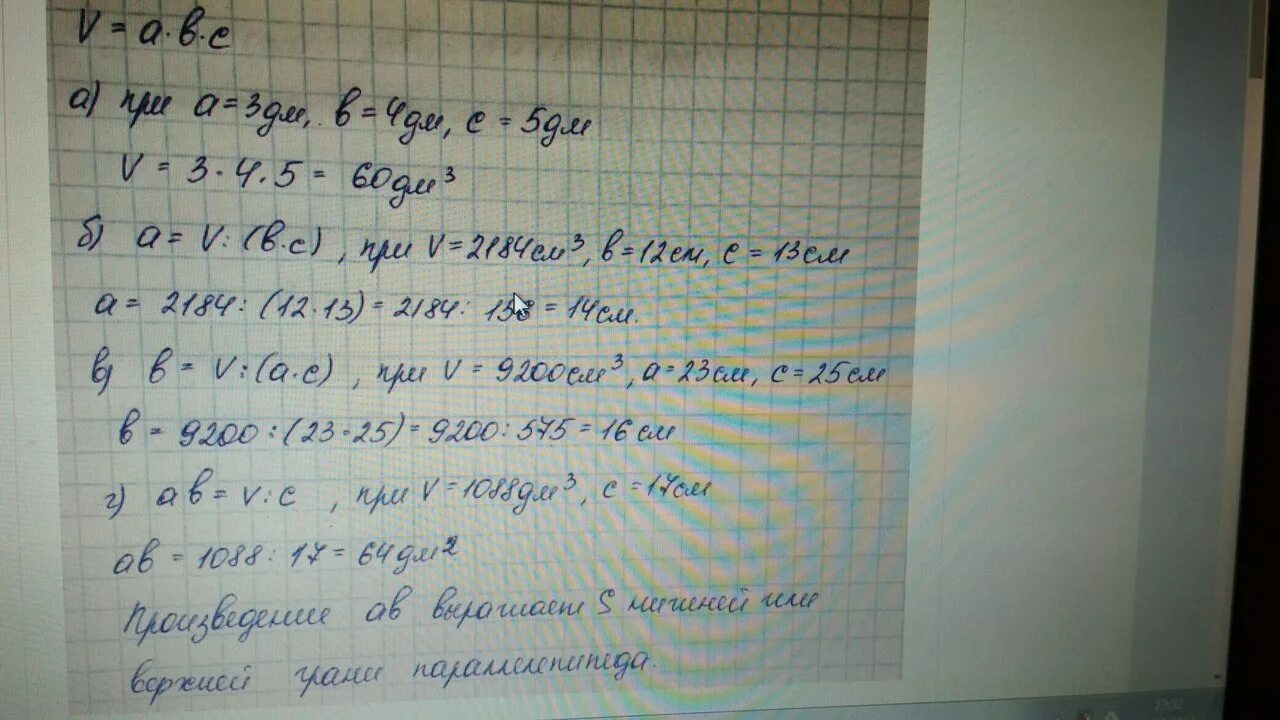 V = a·в·c
а) при a = 3дм, в = 4дм, c = 5дм
V = 3·4·5 = 60дм³
б) a = V:(в·c), при V = 2184см³, в = 12см, c = 13см
a = 2184:(12·13) = 2184: 156 = 14см.
в) в = V:(a·c), при V = 9200см³, a = 23см, c = 25см
в = 9200:(23·25) = 9200:575 = 16см
г) aв = V:c, при V = 1088дм³, c = 17см
aв = 1088:17 = 64дм²
Произведение aв выражает S нижней или
верхней грани параллелепипеда.